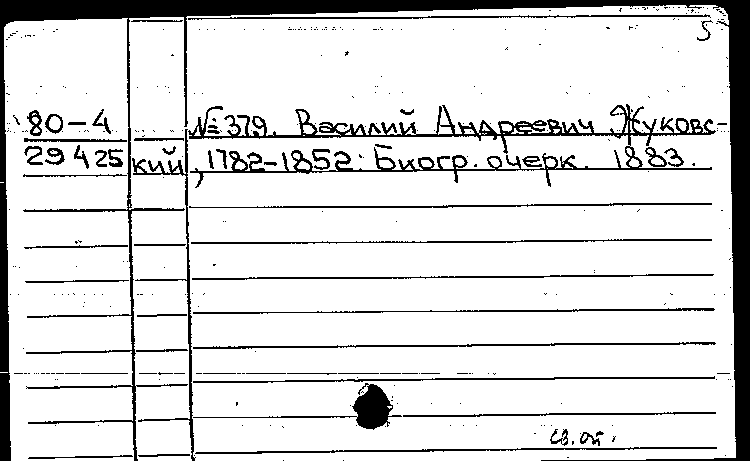 5
80-4 № 379. Василий Андреевич Жуковс-
29425 кий, 1782-1852: Биогр. очерк. 1883.